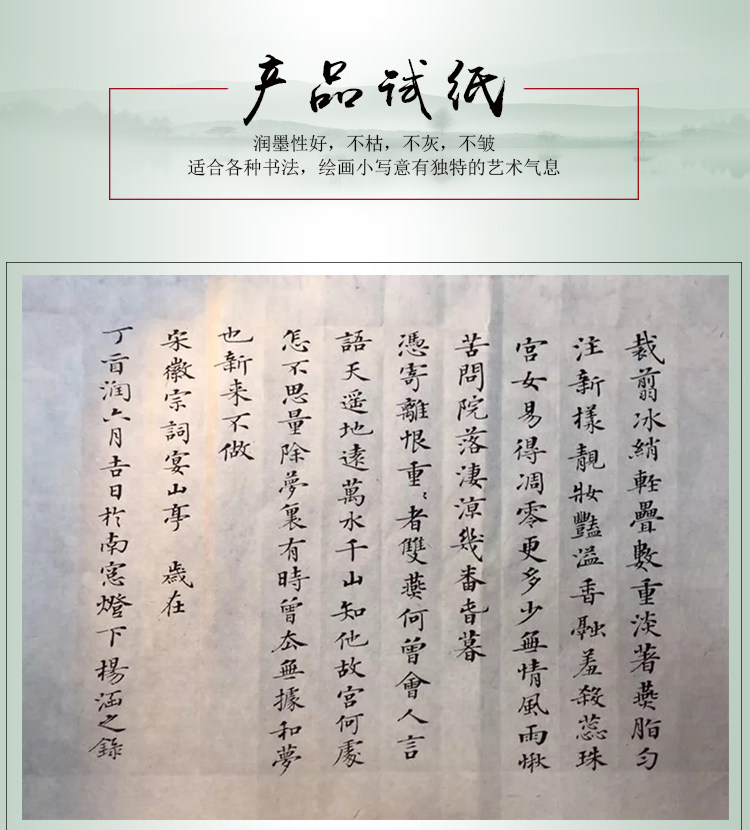 产品试纸
润墨性好，不枯，不灰，不皱
适合各种书法，绘画小写意有独特的艺术气息
裁翦冰綃軽疊數重淡著燕脂匀
注新樣靚妝豔溢香融羞殺蕊珠
宮女易得凋零更多少無情風雨愀
苦問院落淒涼幾番春暮
憑寄離恨重〻者雙燕何曾會人言
語天遥地遠萬水千山知他故宮何處
怎不思量除夢裏有時曾去無據和夢
也新来不做
宋徽宗詞宴山亭　歲在
丁酉润六月吉日於南窓燈下楊涵之錄